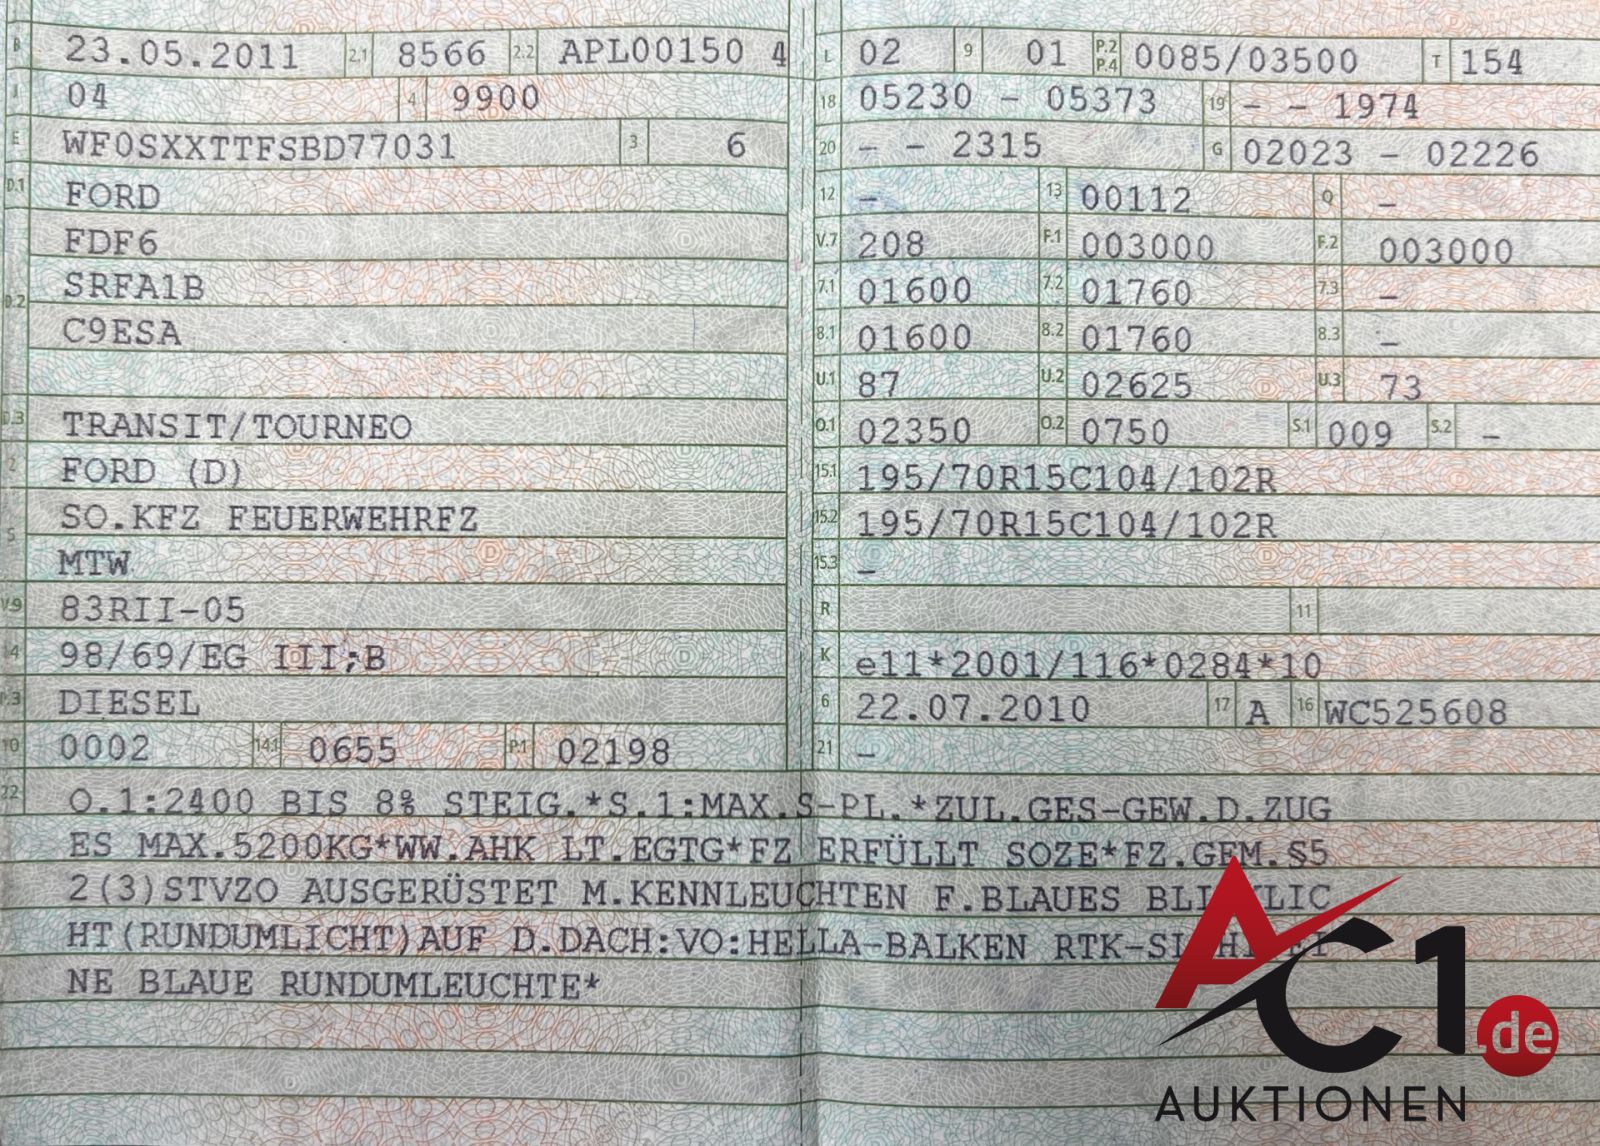 B 23.05.2011 2.1 8566 2.2 APL00150 4
J 04 4 9900
E WF0SXXTTFSBD77031 3 6
D.1 FORD
FDF6
D.2 SRFA1B
C9ESA
D.3 TRANSIT/TOURNEO
2 FORD (D)
5 SO.KFZ FEUERWEHRFZ
MTW
V.9 83RII-05
14 98/69/EG III;B
P.3 DIESEL
10 0002 14.1 0655 P.1 02198
L 02 9 01 P.2 P.4 0085/03500 T 154
18 05230 - 05373 19 - - 1974
20 - - 2315 G 02023 - 02226
12 - 13 00112 Q -
V.7 208 F.1 003000 F.2 003000
7.1 01600 7.2 01760 7.3 -
8.1 01600 8.2 01760 8.3 -
U.1 87 U.2 02625 U.3 73
O.1 02350 O.2 0750 S.1 009 S.2 -
15.1 195/70R15C104/102R
15.2 195/70R15C104/102R
15.3 -
R 11
K e11*2001/116*0284*10
6 22.07.2010 17 A 16 WC525608
21 -
22 O.1:2400 BIS 8% STEIG.*S.1:MAX.S-PL.*ZUL.GES-GEW.D.ZUG
ES MAX.5200KG*WW.AHK LT.EGTG*FZ ERFÜLLT SOZE*FZ.GEM.§5
2(3)STVZO AUSGERÜSTET M.KENNLEUCHTEN F.BLAUES
HT(RUNDUMLICHT)AUF D.DACH:VO:HELLA-BALKEN
NE BLAUE RUNDUMLEUCHTE*
AC1.de
AUKTIONEN